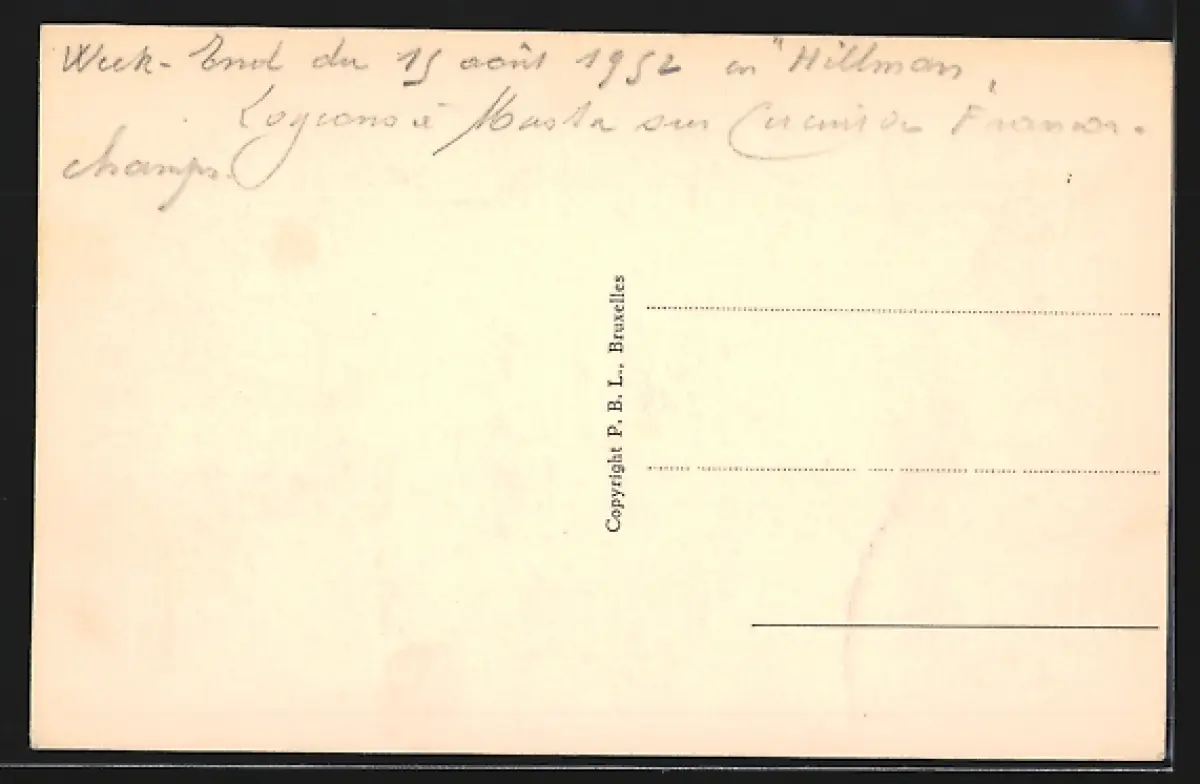 Week-End du 15 août 1952 en "Hillman"
Logeons à Masta sur Circuit de Francor-
champs.
Copyright P. B. L., Bruxelles